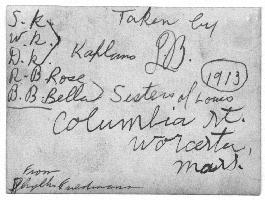 S. K.
W. K.
D. K.
Kaplans
R-B Rose
B. B. Bella
Sisters of Louis
Taken by
B.
1913
Columbia St.
Worcester,
Mass.
From